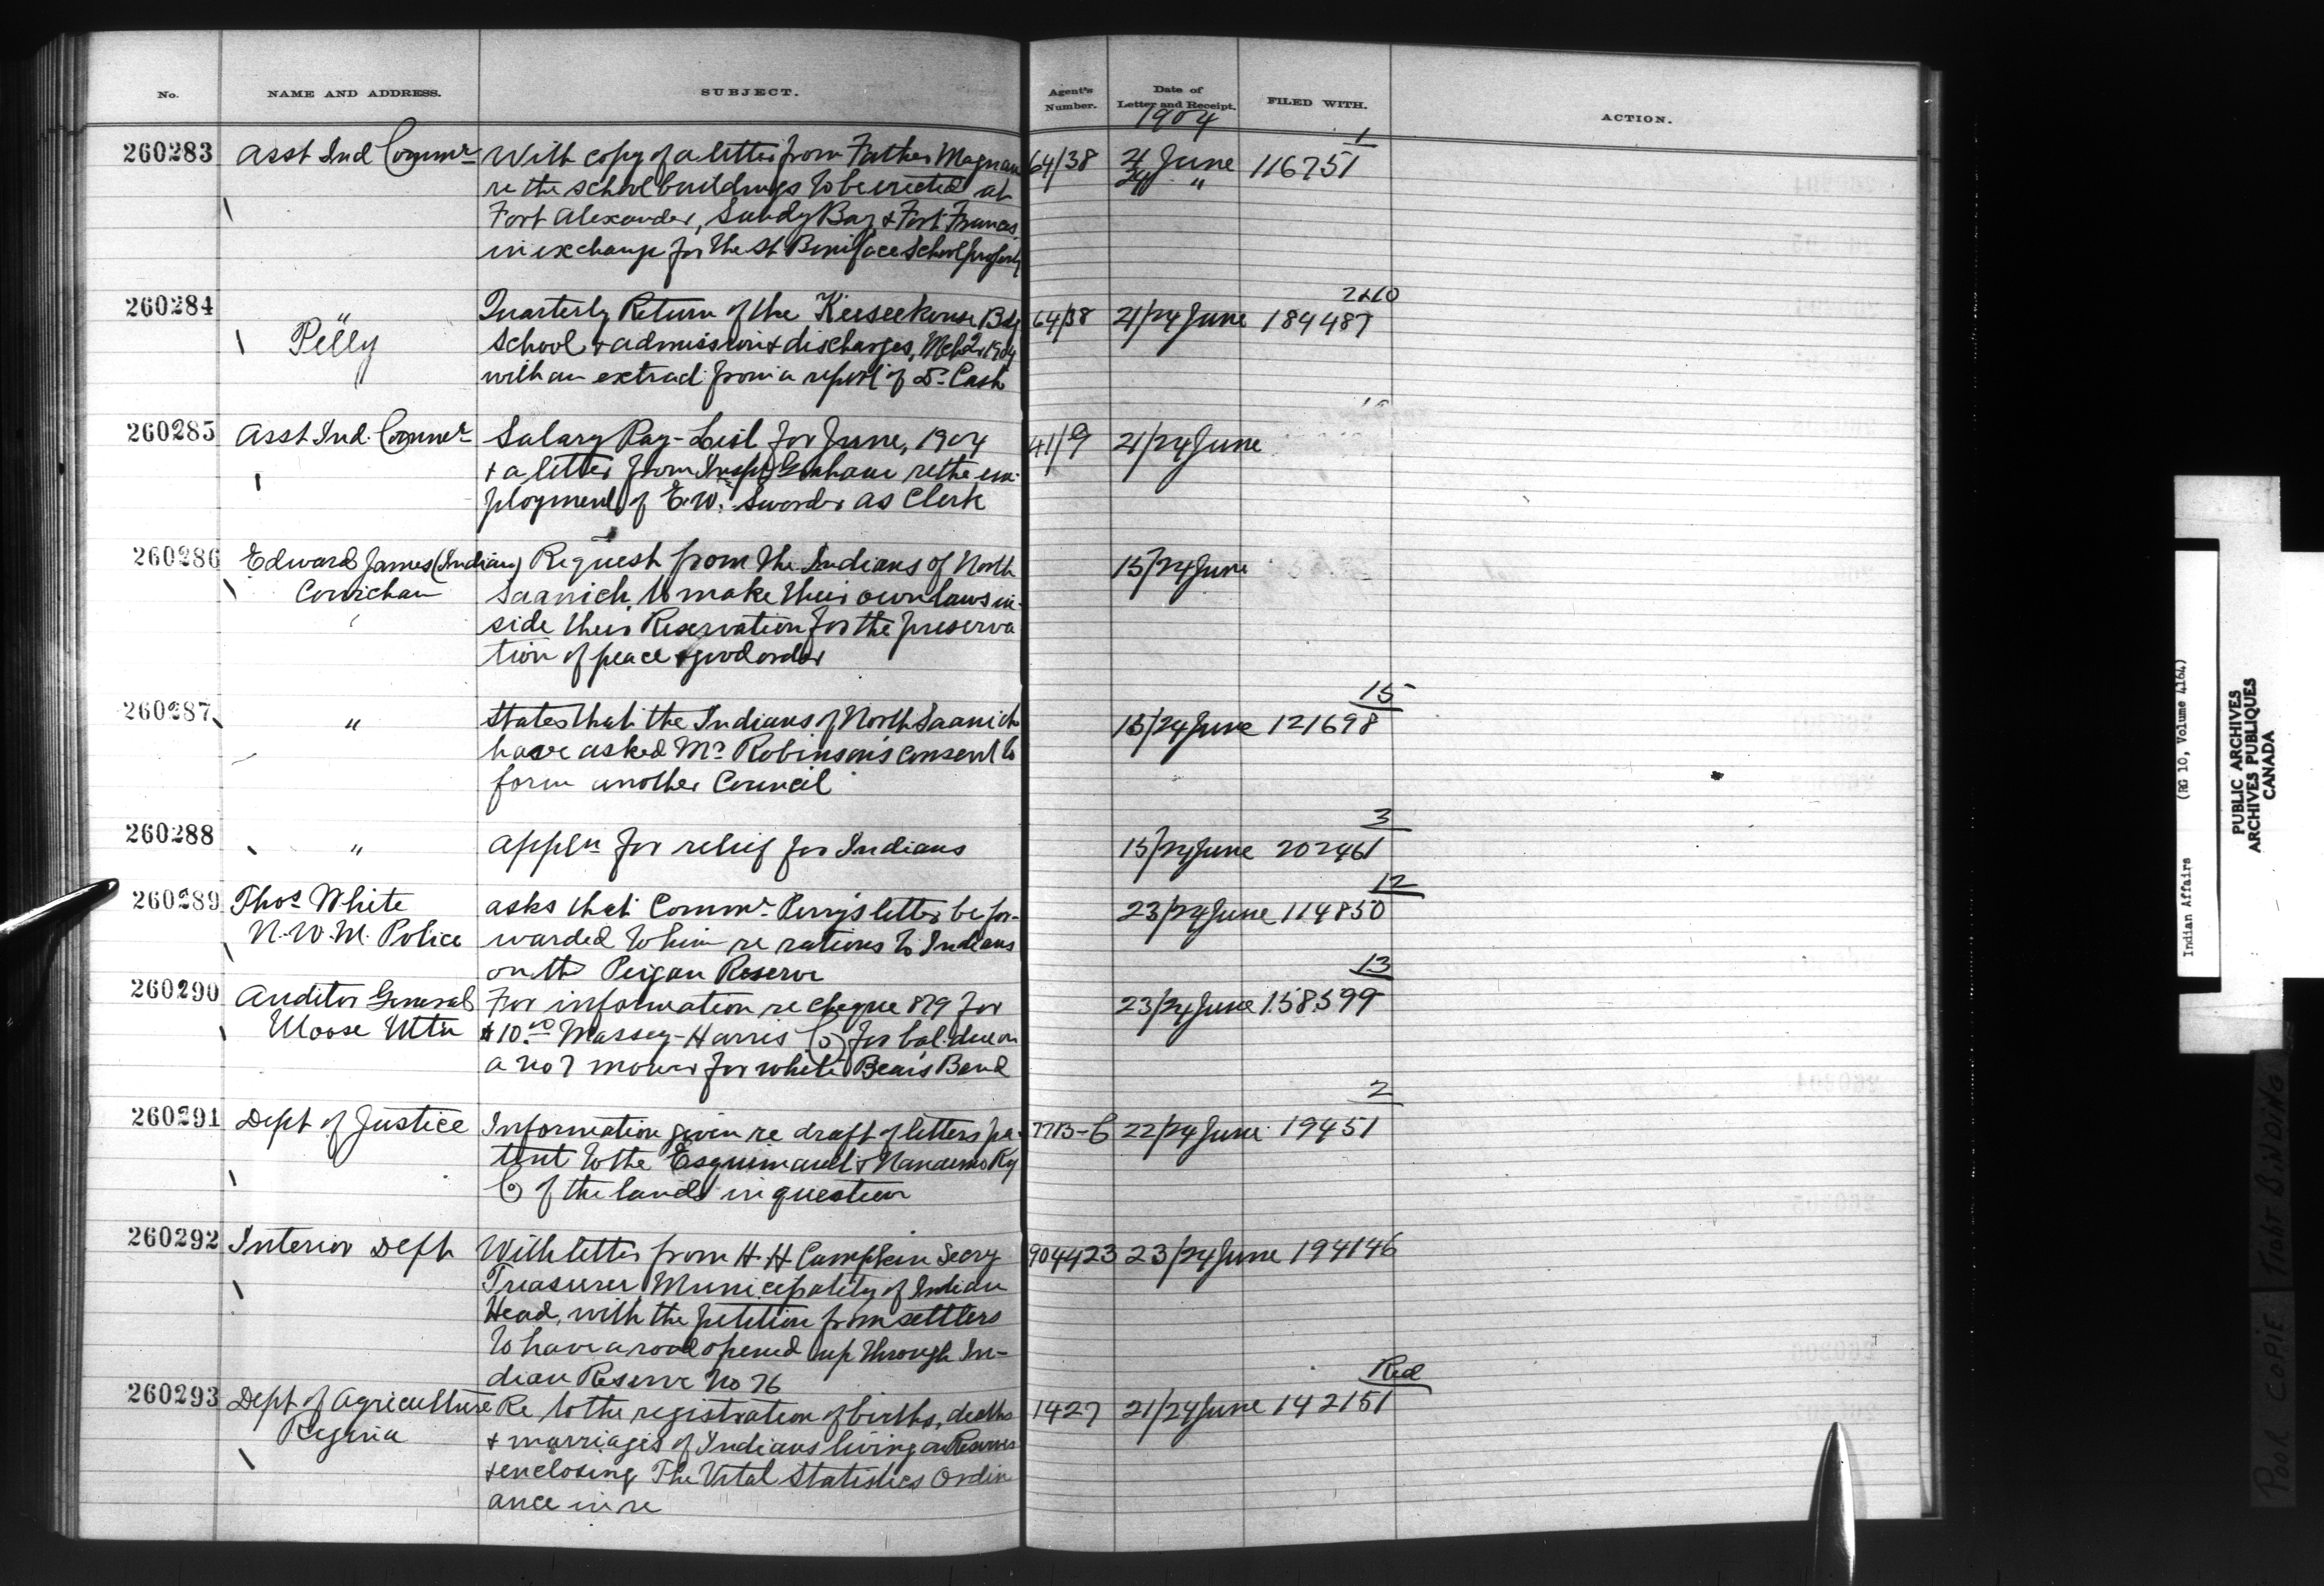 No. NAME AND ADDRESS. SUBJECT. Agent's Number. Date of Letter and Receipt. FILED WITH. ACTION.
1904
1
260283 Asst Ind Commr With copy of a letter from Father Magnan 64/38 21 June 116751
re the school buildings to be erected at 24 "
Fort Alexander, Sandy Bay, & Fort Frances
in exchange for the St Boniface School property
2&10
260284 " Quarterly Return of the Keeseekouse Bdg 64/38 21/24 June 184487
Pelly School & admission & discharges, Mch Qr 1904
with an extract from a report of Dr Cash
260285 Asst Ind. Commr Salary Pay-List for June, 1904 41/9 21/24 June
& a letter from Inspr Graham re the em-
ployment of E.W. Sworder as Clerk
260286 Edward James (Indian) Request from the Indians of North 15/24 June
Cowichan Saanich, to make their own laws in-
side their Reservation for the preserva
tion of peace & good order
15
260287 " States that the Indians of North Saanich 15/24 June 121698
have asked Mr Robinson's consent to
form another Council
3
260288 " Appln for relief for Indians 15/24 June 202461
12
260289 Thos White asks that Commr Perry's letter be for- 23/24 June 114850
N.W.M. Police warded to him re rations to Indians
on the Peigan Reserve
13
260290 Auditor General For information re cheque 879 for 23/24 June 158599
Moose Mtn $10.00 Massey-Harris Co for bal. due on
a No 7 mower for White Bear's Band
2
260291 Dept of Justice Information given re draft of letters pa- 22/24 June 19451
tent to the Esquimault & Nanaimo Ry
Co of the lands in question
260292 Interior Dept With letter from H.H Campkin Secry 904423 23/24 June 194146
Treasurer Municipality of Indian
Head, with the petition from settlers
to have a road opened up through In-
dian Reserve No 76
Red
260293 Dept of Agriculture Re to the registration of births, deaths 1427 21/24 June 142151
Regina & marriages of Indians living on Reserves
& enclosing The Vital Statistics Ordin
ance in re
Indian Affairs (RG 10, Volume 4164)
PUBLIC ARCHIVES
ARCHIVES PUBLIQUES
CANADA
POOR COPIE TIGHT BINDING